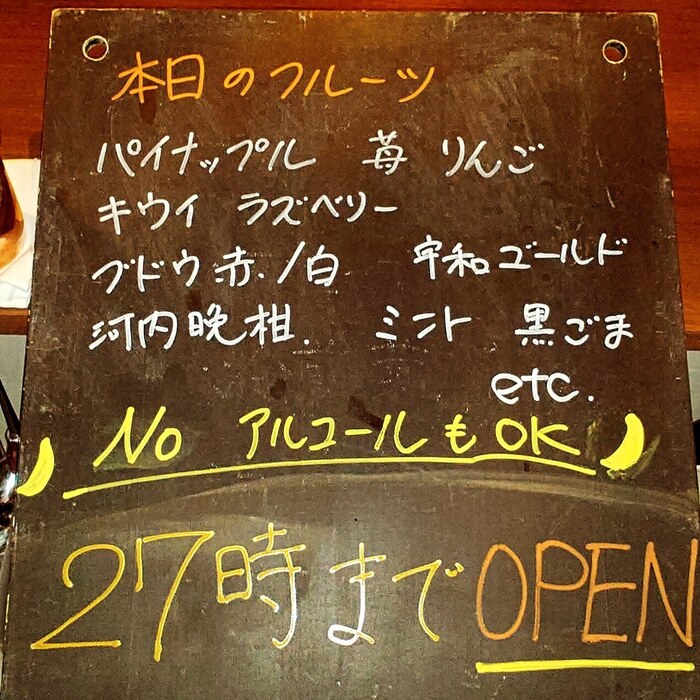 本日のフルーツ
パイナップル 苺 りんご
キウイ ラズベリー
ブドウ赤/白 宇和ゴールド
河内晩柑. ミント 黒ごま
etc.
No アルコールもOK
27時までOPEN